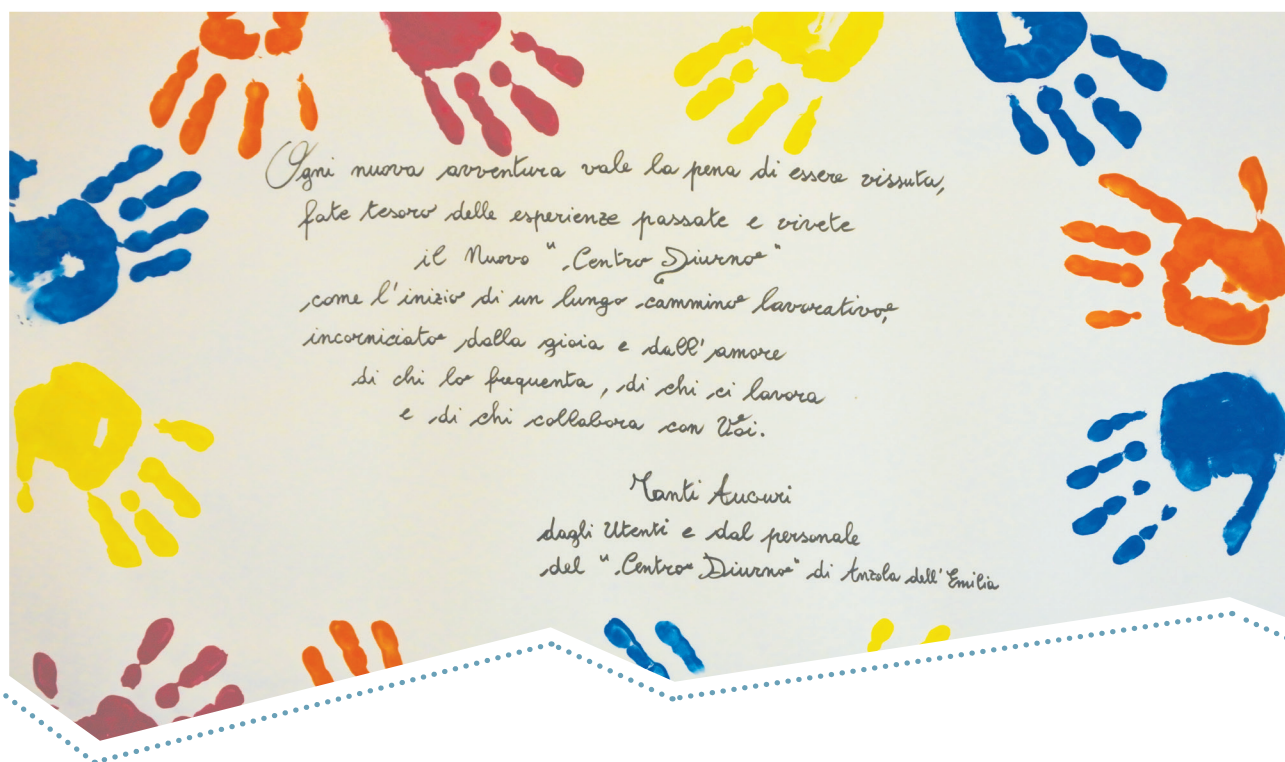 Ogni nuova avventura vale la pena di essere vissuta,
fate tesoro delle esperienze passate e vivete
il Nuovo "Centro Diurno"
come l'inizio di un lungo cammino lavorativo,
incorniciato dalla gioia e dall'amore
di chi lo frequenta, di chi ci lavora
e di chi collabora con Voi.
Tanti Auguri
dagli Utenti e dal personale
del "Centro Diurno" di Anzola dell'Emilia